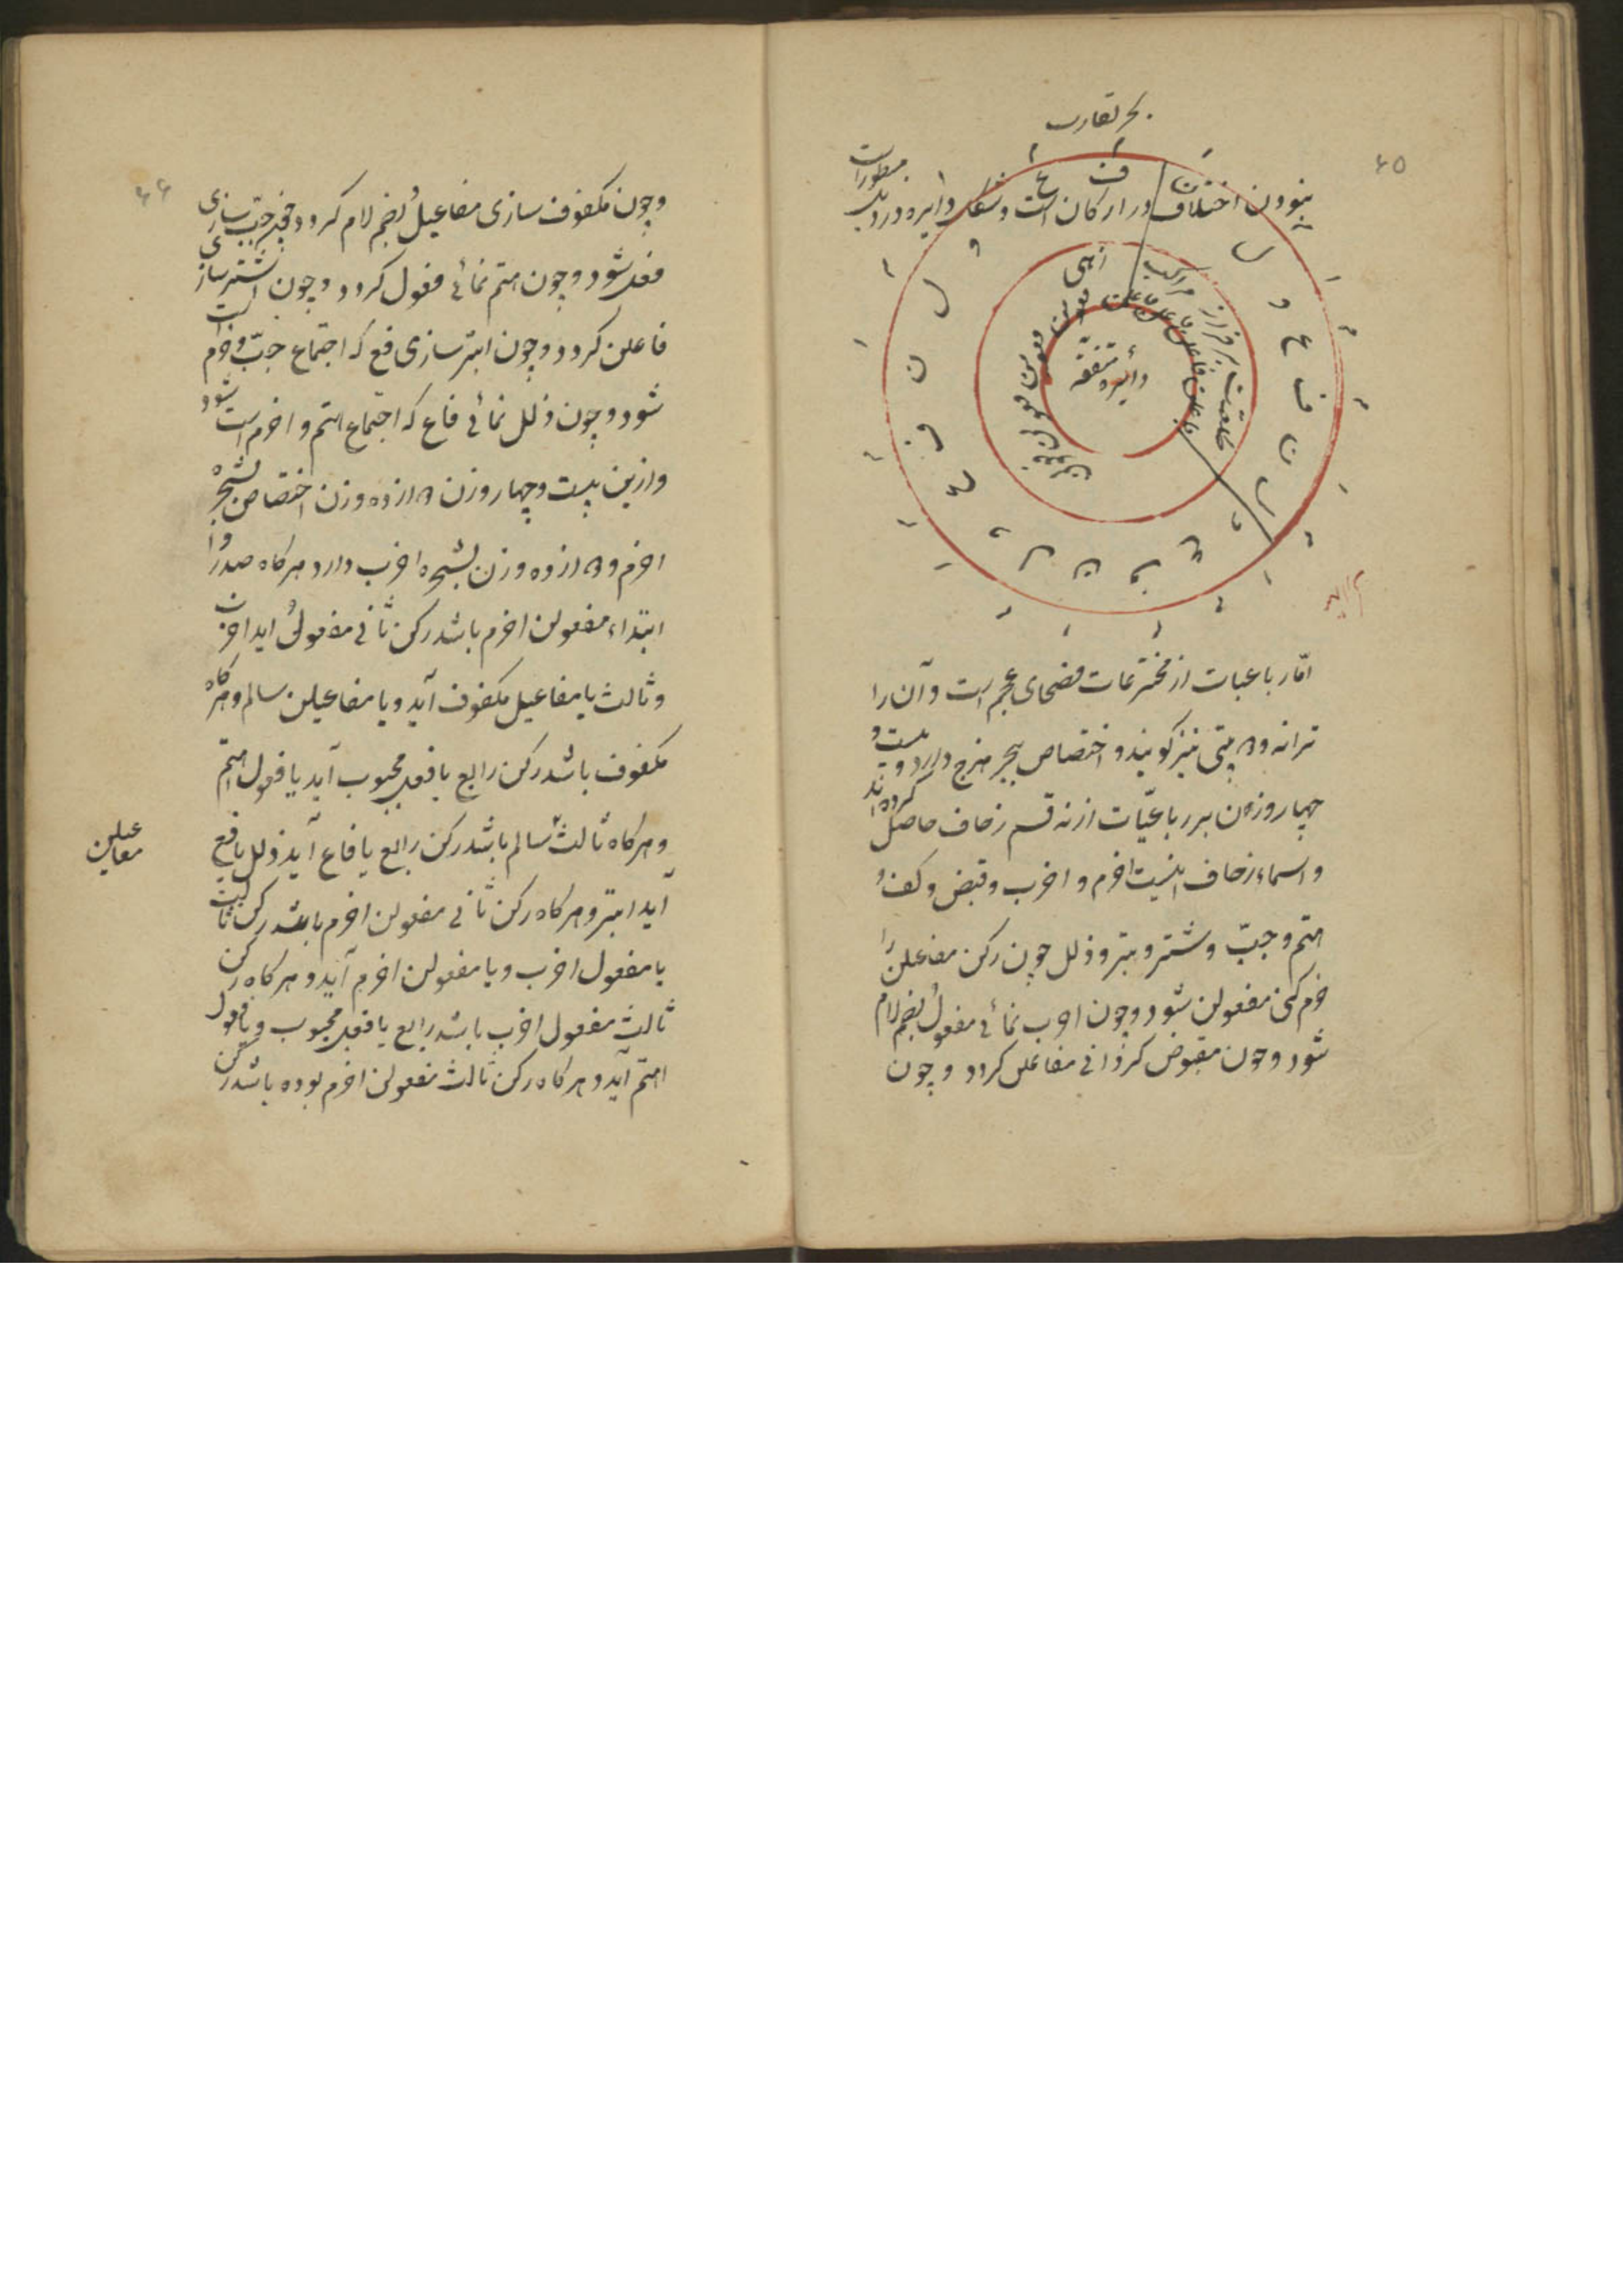 ۶۵
بحر تقارب
نبودن اختلاف در ارکان است و شکل دایره در دیل
مسطورات
دایره متفقه
اما رباعیات از مخترعات فصحای عجم است و آن را
ترانه و دو بیتی نیز گویند و اختصاص ببحر هزج دارد و بیست و
چهار وزن بر رباعیّات از نه قسم زحاف حاصل کرده‌اند
و اسماء زحاف اینست اخرم و اخرب و قبض و کف و
اهتم و جبّ و شتر و بتر و ذلل چون رکن مفاعلن را
خرم کنی مفعولن شود و چون اخرب نمائی مفعولُ بضم لام
شود و چون مقبوض کردانی مفاعلن کردد و چون
۶۶
وچون مکفوف سازی مفاعیلُ بضم لام کردد و چون جبّ سازی
فعل شود و چون اهتم نمائی فعول کردد و چون اشتر سازی
فاعلن کردد و چون ابتر سازی فع که اجتماع جبّ و خرم است
شود و چون ذلل نمائی فاع که اجتماع اهتم و اخرم است شود
و ازین بیست و چهار وزن دوازده وزن اختصاص بشجرهٔ
اخرم و دوازده وزن بشجره اخرب دارد هرکاه صدر و
ابتداء مفعولن اخرم باشد رکن ثانی مفعولُ اید اخرب
و ثالث یا مفاعیل مکفوف آید و یا مفاعیلن سالم و هرکاه
مکفوف باشد رکن رابع یا فعل مجبوب آید یا فعول اهتم
و هرکاه ثالث سالم باشد رکن رابع یا فاع آید ذلل یا فع
آید ابتر و هرکاه رکن ثانی مفعولن اخرم باشد رکن ثالث
یا مفعول اخرب و یا مفعولن اخرم آید و هرکاه رکن
ثالث مفعول اخرب باشد رابع یا فعل مجبوب و یا فعول
اهتم آید و هرکاه رکن ثالث مفعولن اخرم بوده باشد رکن
مفاعیلن